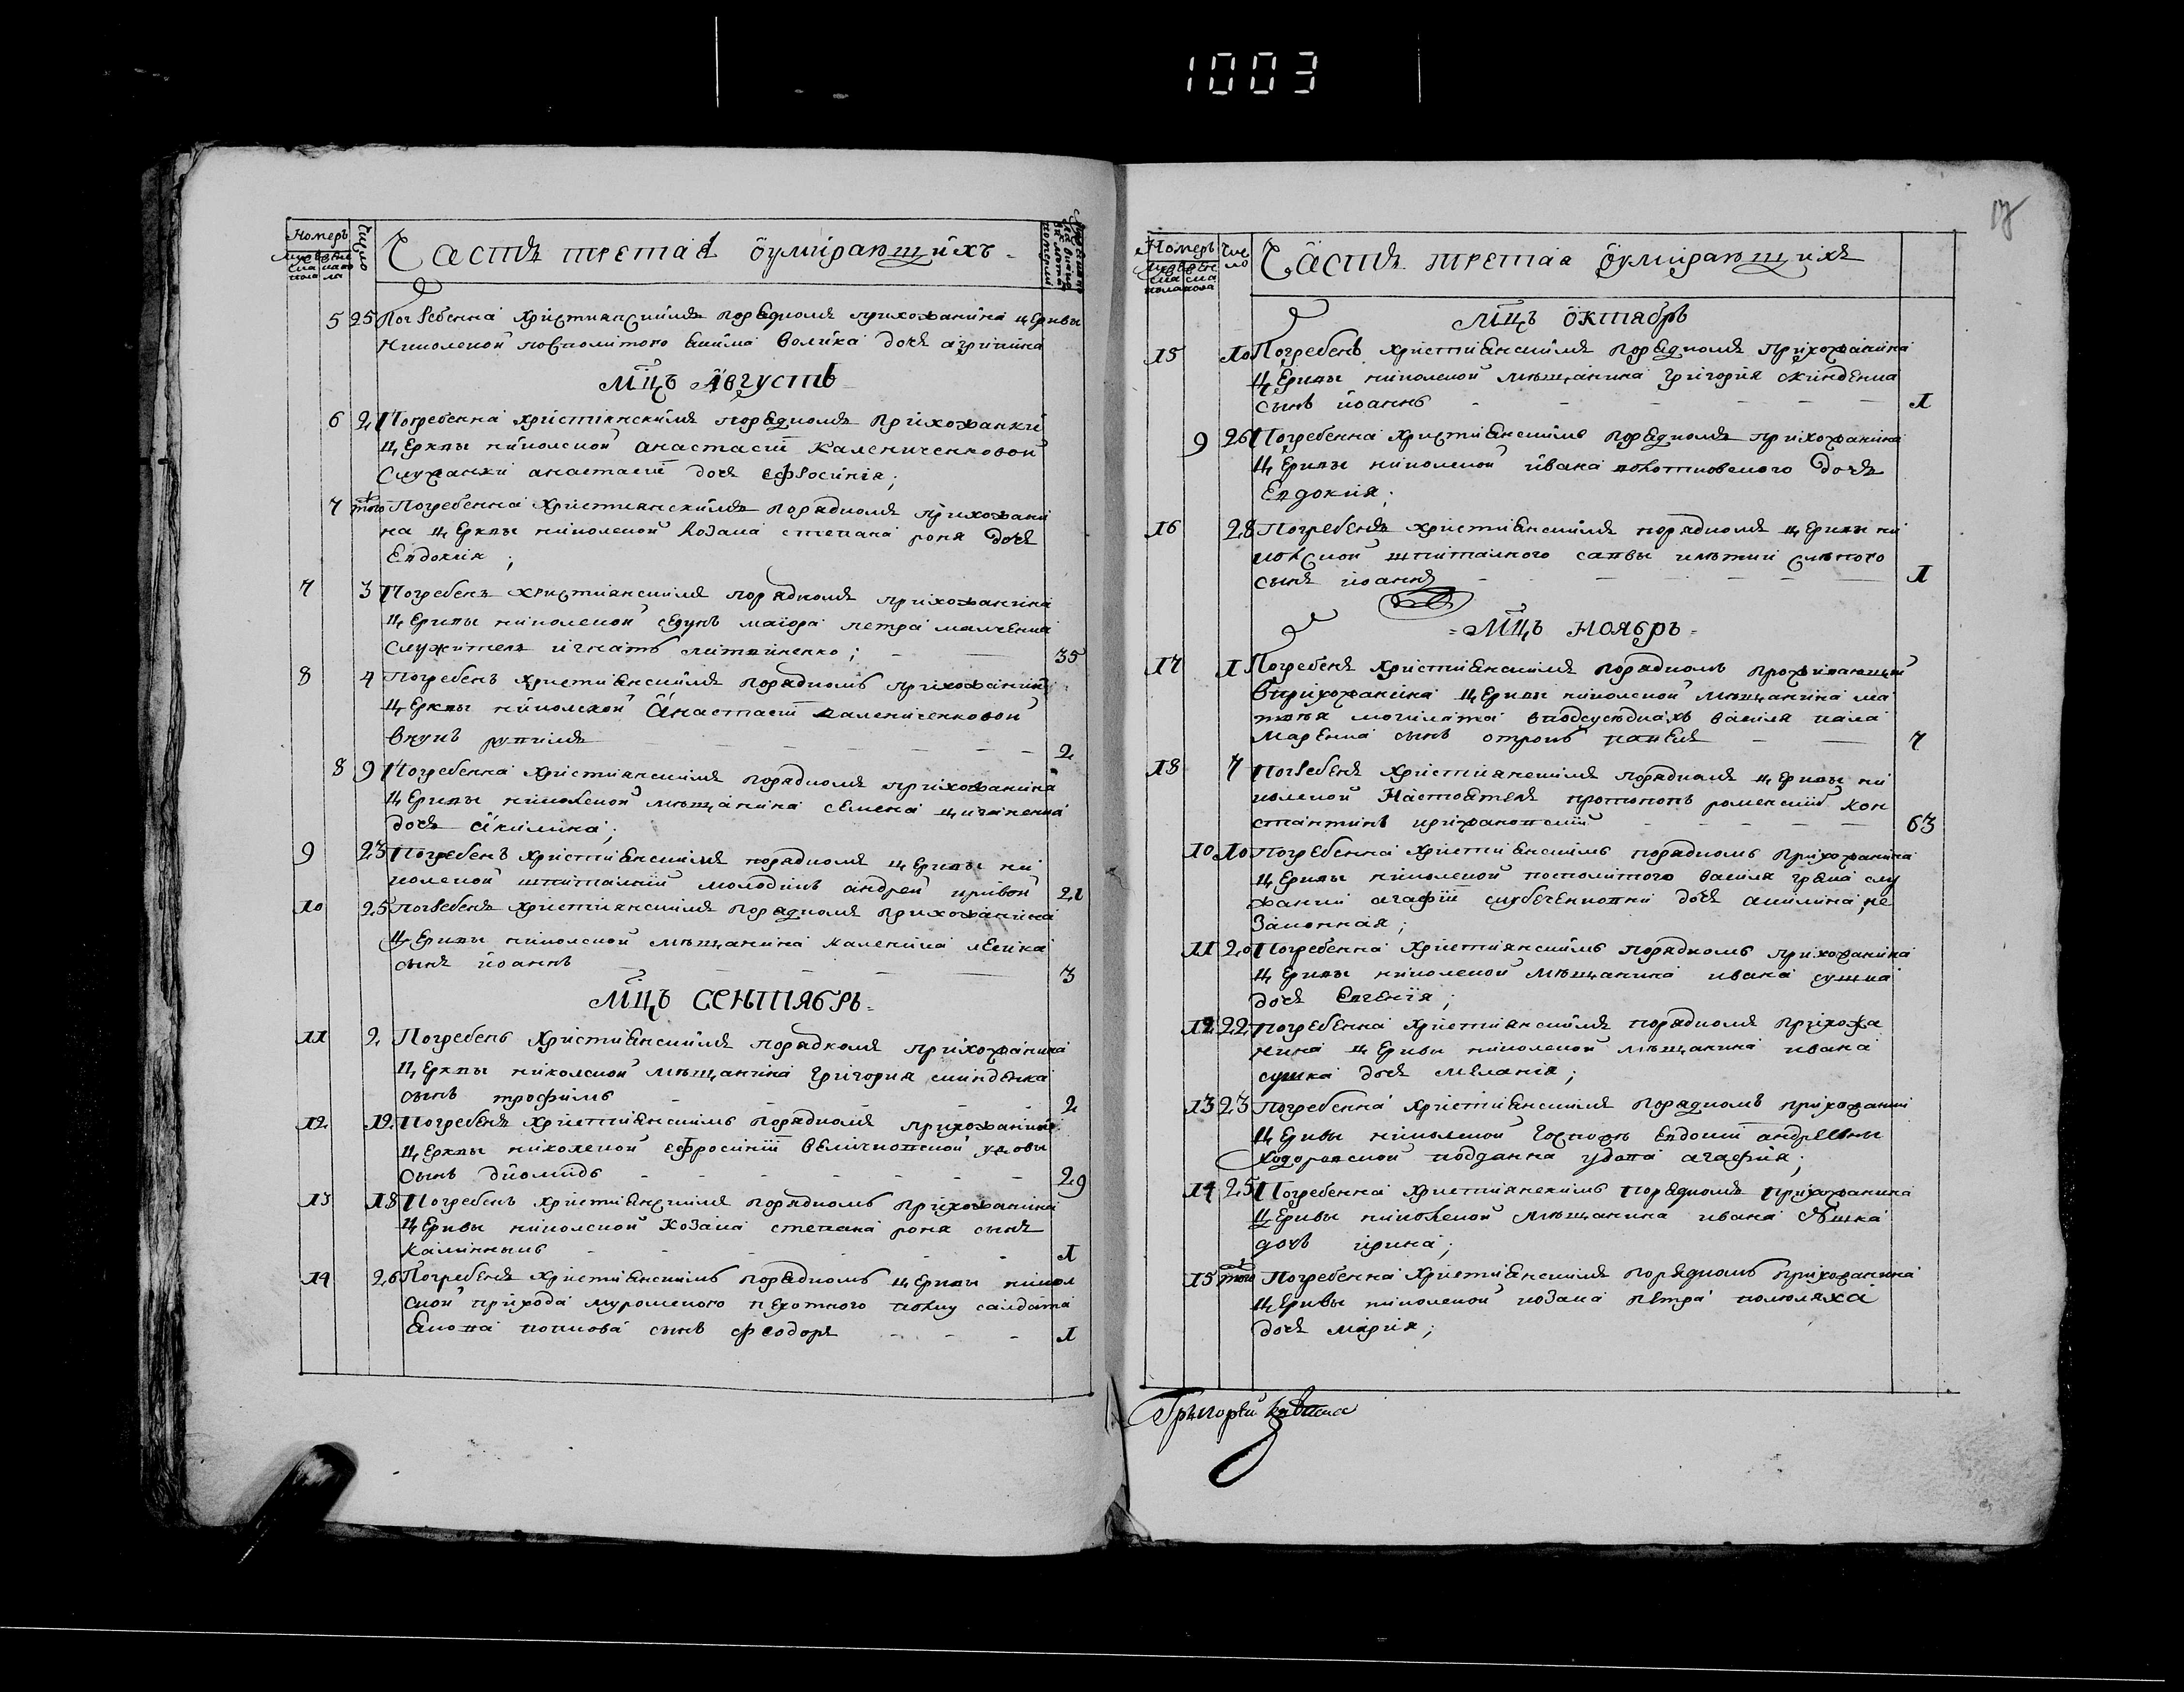 1003
Номеръ Число Часть третая оумирающихъ
5 25 Погребенна християнскимъ порядкомъ прихожанина церкви
николской посполитого волика дочь агрипина
Мцъ Августъ
6 2 Погребенна христіянскимъ порядкомъ прихожанки
церквы николской анастасіи калениченковой
служанки анастасіи дочь ефросинія;
7 того Погребенна християнскимъ порядкомъ прихожани
на церквы николской козака степана роня дочь
Евдокия;
7 3 Погребенъ християнскимъ порядкомъ прихожанина
церквы николской секунъ маіора петра
служитель игнатъ литвиненко; 35
8 4 Погребенъ християнскимъ порядкомъ прихожанки
церквы николской Анастасіи калениченковой
внукъ 2
8 9 Погребенна християнскимъ порядкомъ прихожанина
церквы николской мѣщанина семена
дочь акилина;
9 23 Погребенъ християнскимъ порядкомъ церквы ни
колской шпиталній молодикъ андрей кривой 21
10 25 Погребенъ християнскимъ порядкомъ прихожанина
церквы николской мѣщанина каленика
сынъ иоаннъ 3
Мцъ СЕНТЯБРЬ
11 2 Погребенъ християнскимъ порядкомъ прихожанина
церквы николской мѣщанина григория скинденка
сынъ трофимъ 2
12 12 Погребенъ християнскимъ порядкомъ прихожанки
церквы николской ефросиніи величковской удовы
сынъ диомидъ 29
13 18 Погребенъ християнскимъ порядкомъ прихожанина
церквы николской козака степана роня сынъ
1
14 26 Погребенъ християнскимъ порядкомъ церквы никол
ской прихода муромского пехотного полку салдата
попкова сынъ феодоръ 1
Номеръ Число Часть третая оумирающихъ
Мцъ октябрь
15 10 Погребенъ християнскимъ порядкомъ прихожанина
церквы николской мѣщанина григория скинденка
сынъ иоаннъ 1
9 26 Погребенна християнскимъ порядкомъ прихожанина
церквы николской ивана дочь
Евдокия;
16 28 Погребенъ християнскимъ порядкомъ церквы ни
колской шпиталного саввы слѣпого
сынъ иоаннъ 1
Мцъ Ноябрь
17 1 Погребенъ християнскимъ порядкомъ проживающий
в прихожанина церквы николской мѣщанина ма
твея в подсусѣдкахъ василя пала
маренка сынъ отрокъ 7
18 7 Погребенъ християнскимъ порядкомъ церквы ни
колской Настоятель протопопъ роменскій кон
стантинъ крижановскій 63
10 10 Погребенна християнскимъ порядкомъ прихожанина
церквы николской посполитого василя слу
жанки агафіи дочь акилина, не
законная;
11 20 Погребенна християнскимъ порядкомъ прихожанина
церквы николской мѣщанина ивана сушка
дочь Евгения;
12 22 погребенна християнскимъ порядкомъ прихожа
нина церквы николской мѣщанина ивана
сушка дочь меланія;
13 23 погребенна християнскимъ порядкомъ прихожанки
церквы николской Госпожъ Евдокіи андреевны
подданна удова агафия;
14 25 Погребенна християнскимъ порядкомъ прихожанина
церквы николской мѣщанина ивана
дочь ирина;
15 того Погребенна християнскимъ порядкомъ прихожанина
церквы николской козака петра полюляха
дочь мария;